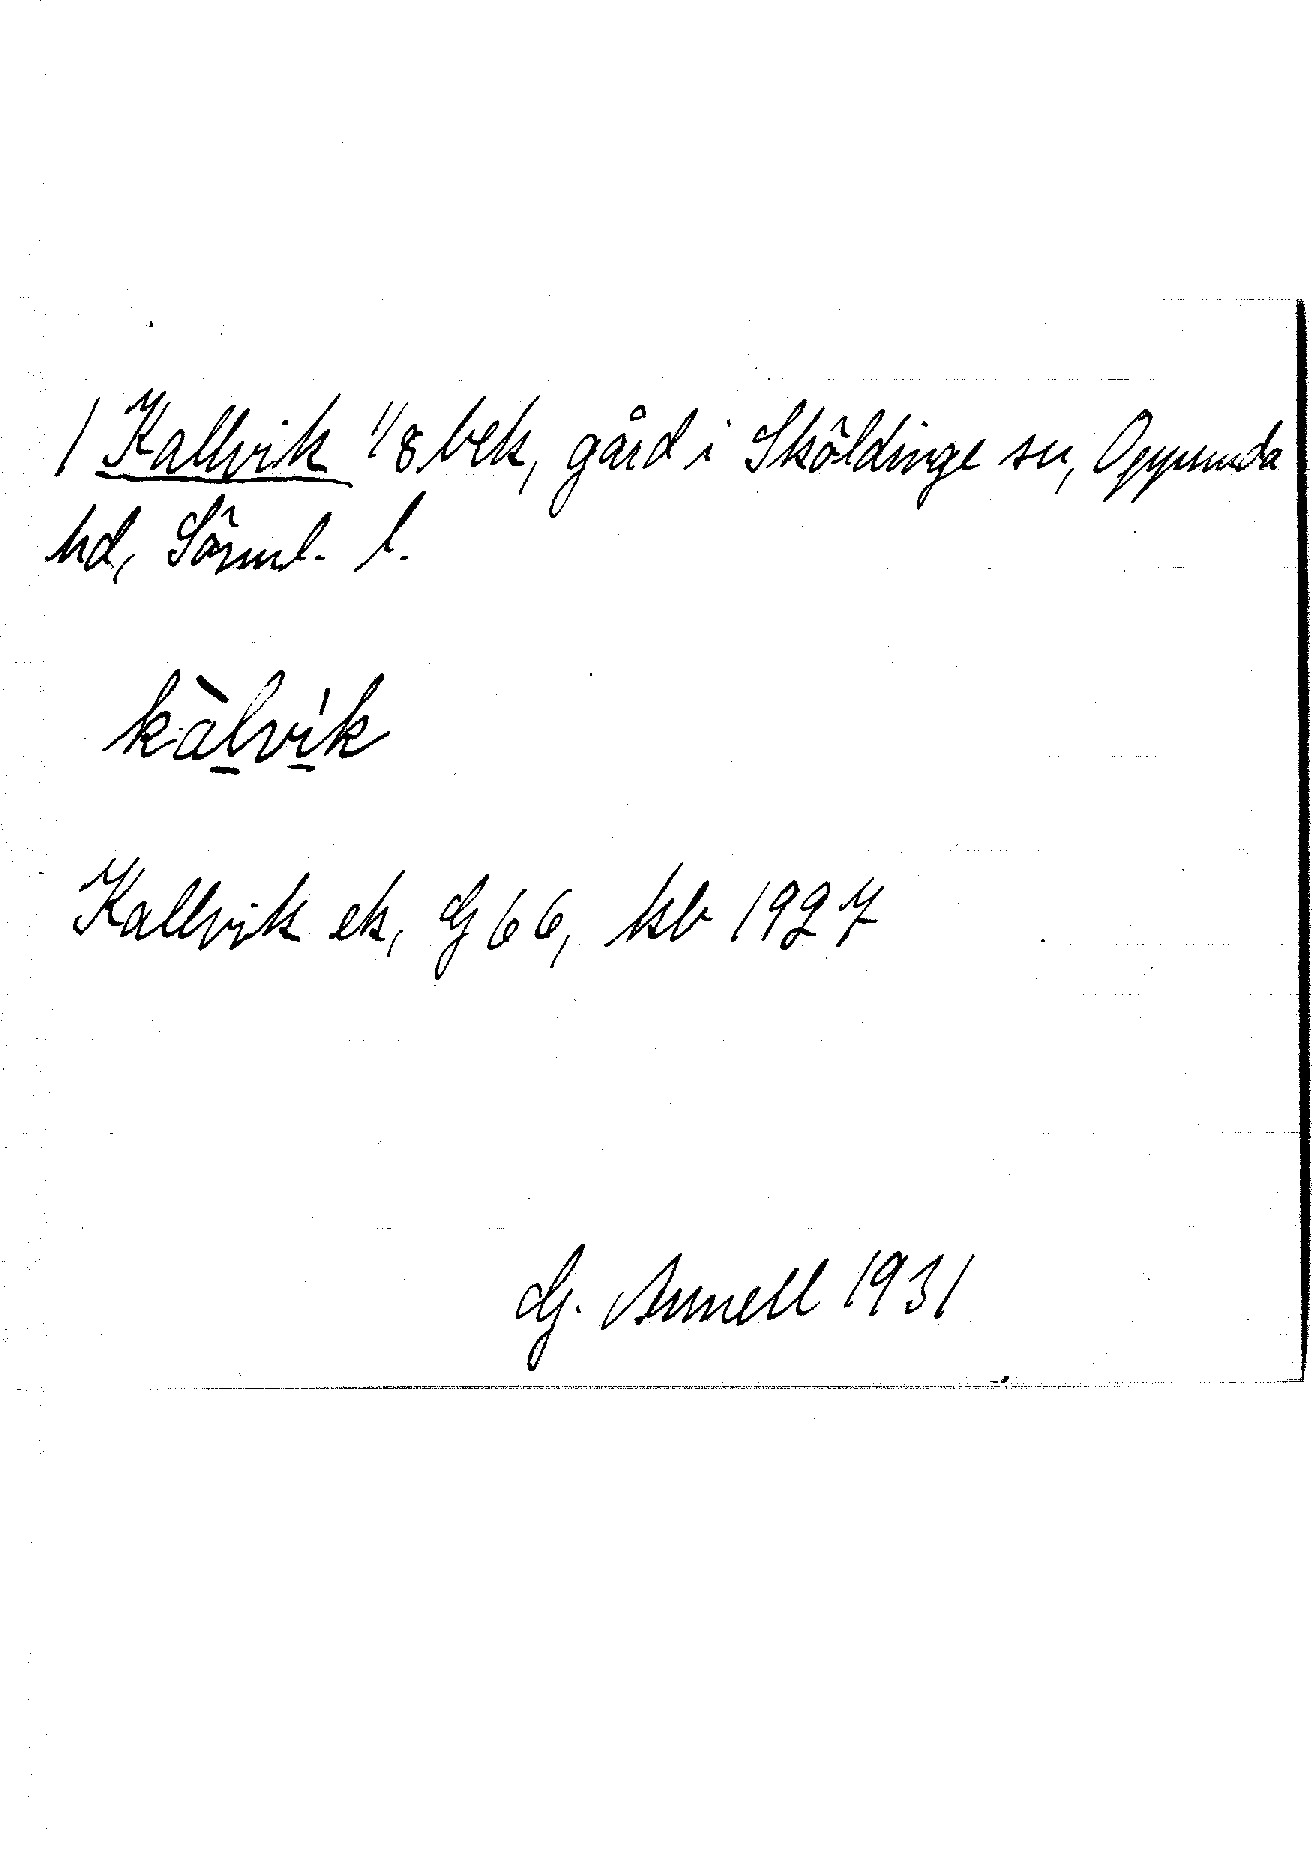 1 Kallvik 1/8 bek, gård i Sköldinge sn, Oppunda
hd, Sörml. l.
kàlvi̍k
Kallvik ek, G 66, kb 1927
G. Annell 1931